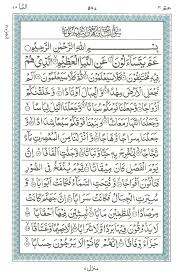 عم ٣٠
بِسْمِ اللهِ الرَّحْمٰنِ الرَّحِيْمِ
عَمَّ يَتَسَآءَلُوْنَ عَنِ النَّبَاِ الْعَظِيْمِ الَّذِيْ هُمْ
فِيْهِ مُخْتَلِفُوْنَ كَلَّا سَيَعْلَمُوْنَ ثُمَّ كَلَّا سَيَعْلَمُوْنَ اَلَمْ نَجْعَلِ
الْاَرْضَ مِهٰدًا وَّالْجِبَالَ اَوْتَادًا وَّخَلَقْنٰكُمْ اَزْوَاجًا
وَّجَعَلْنَا نَوْمَكُمْ سُبَاتًا وَّجَعَلْنَا الَّيْلَ لِبَاسًا وَّ
جَعَلْنَا النَّهَارَ مَعَاشًا وَّبَنَيْنَا فَوْقَكُمْ سَبْعًا شِدَادًا وَّ
جَعَلْنَا سِرَاجًا وَّهَّاجًا وَّاَنْزَلْنَا مِنَ الْمُعْصِرٰتِ مَآءً
ثَجَّاجًا لِّنُخْرِجَ بِهٖ حَبًّا وَّنَبَاتًا وَّجَنّٰتٍ اَلْفَافًا اِنَّ
يَوْمَ الْفَصْلِ كَانَ مِيْقَاتًا يَّوْمَ يُنْفَخُ فِي الصُّوْرِ
فَتَاْتُوْنَ اَفْوَاجًا وَّفُتِحَتِ السَّمَآءُ فَكَانَتْ اَبْوَابًا وَّ
سُيِّرَتِ الْجِبَالُ فَكَانَتْ سَرَابًا اِنَّ جَهَنَّمَ كَانَتْ
مِرْصَادًا لِّلطّٰغِيْنَ مَاٰبًا لّٰبِثِيْنَ فِيْهَآ اَحْقَابًا
لَا يَذُوْقُوْنَ فِيْهَا بَرْدًا وَّلَا شَرَابًا اِلَّا حَمِيْمًا وَّغَسَّاقًا
جَزَآءً وِّفَاقًا اِنَّهُمْ كَانُوْا لَا يَرْجُوْنَ حِسَابًا
منزل ٧